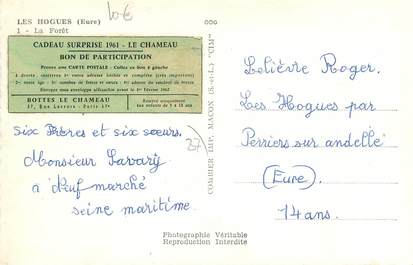 LES HOGUES (Eure)
1 - La Forêt
10€
CADEAU SURPRISE 1961 - LE CHAMEAU
BON DE PARTICIPATION
Prenez une CARTE POSTALE - Collez ce bon à gauche
BOTTES LE CHAMEAU
Envoi uniquement
aux enfants de 5 à 15 ans
Six Frères et six sœurs.
27
Monsieur Savary
à Neuf marché
seine maritime.
COMBIER IMP. MACON (S.-et-L.) "CIM"
Lelièvre Roger.
Les Hogues par
Perriers sur andelle
(Eure).
14 ans.
Photographie Véritable
Reproduction Interdite